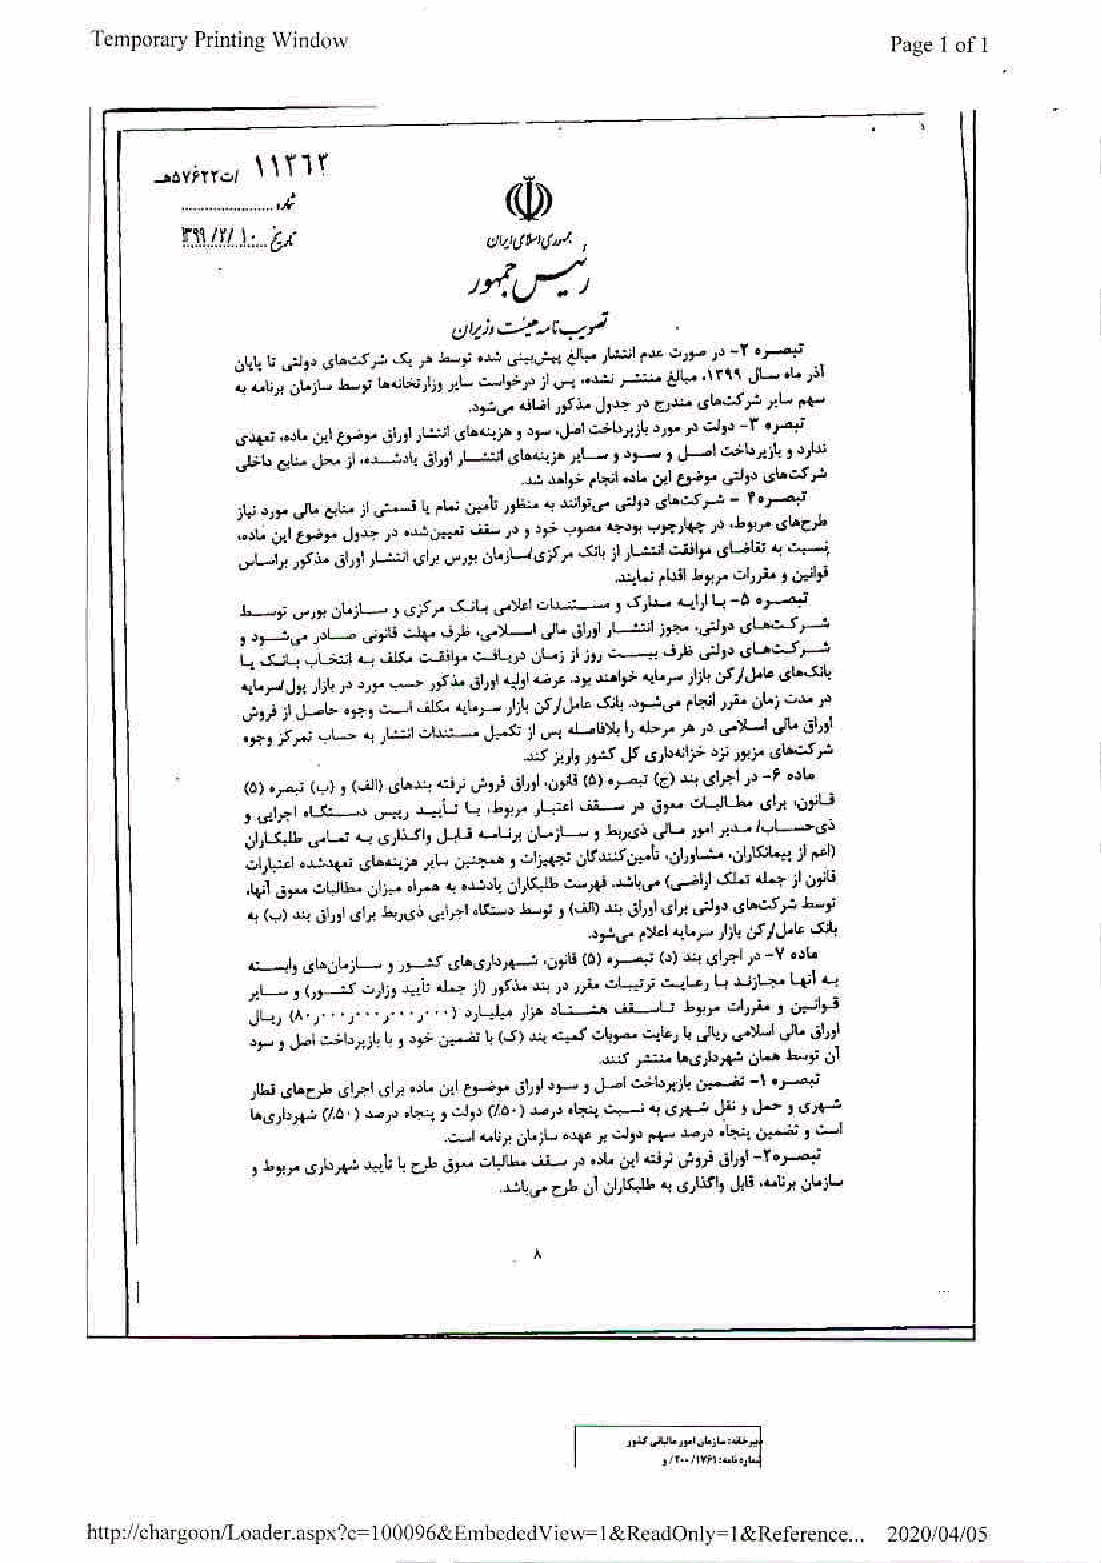 Temporary Printing Window
Page 1 of 1
۱۱۳۶۲ /ت۵۷۶۲۲هـ
شماره
تاریخ ۱۰ /۲/ ۳۹۹
جمهوری اسلامی ایران
رئیس جمهور
تصویب نامه هیئت وزیران
تبصره ۲- در صورت عدم انتشار مبالغ پیش‌بینی شده توسط هر یک شرکت‌های دولتی تا پایان
آذر ماه سال ۱۳۹۹، مبالغ منتشر نشده، پس از درخواست سایر وزارتخانه‌ها توسط سازمان برنامه به
سهم سایر شرکت‌های مندرج در جدول مذکور اضافه می‌شود.
تبصره ۳- دولت در مورد بازپرداخت اصل، سود و هزینه‌های انتشار اوراق موضوع این ماده، تعهدی
ندارد و بازپرداخت اصل و سود و سایر هزینه‌های انتشار اوراق یادشده، از محل منابع داخلی
شرکت‌های دولتی موضوع این ماده انجام خواهد شد.
تبصره۴ - شرکت‌های دولتی می‌توانند به منظور تأمین تمام یا قسمتی از منابع مالی مورد نیاز
طرح‌های مربوط، در چهارچوب بودجه مصوب خود و در سقف تعیین‌شده در جدول موضوع این ماده،
نسبت به تقاضای موافقت انتشار از بانک مرکزی/سازمان بورس برای انتشار اوراق مذکور براساس
قوانین و مقررات مربوط اقدام نمایند.
تبصره ۵- با ارایه مدارک و مستندات اعلامی بانک مرکزی و سازمان بورس توسط
شرکت‌های دولتی، مجوز انتشار اوراق مالی اسلامی، ظرف مهلت قانونی صادر می‌شود و
شرکت‌های دولتی ظرف بیست روز از زمان دریافت موافقت مکلف به انتخاب بانک یا
بانک‌های عامل/رکن بازار سرمایه خواهند بود. عرضه اولیه اوراق مذکور حسب مورد در بازار پول/سرمایه
در مدت زمان مقرر انجام می‌شود. بانک عامل/رکن بازار سرمایه مکلف است وجوه حاصل از فروش
اوراق مالی اسلامی در هر مرحله را بلافاصله پس از تکمیل مستندات انتشار به حساب تمرکز وجوه
شرکت‌های مزبور نزد خزانه‌داری کل کشور واریز کند.
ماده ۶- در اجرای بند (ج) تبصره (۵) قانون، اوراق فروش نرفته بندهای (الف) و (ب) تبصره (۵)
قانون، برای مطالبات معوق در سقف اعتبار مربوط، با تأیید رییس دستگاه اجرایی و
ذی‌حساب/مدیر امور مالی ذیربط و سازمان برنامه قابل واگذاری به تمامی طلبکاران
(اعم از پیمانکاران، مشاوران، تأمین‌کنندگان تجهیزات و همچنین سایر هزینه‌های تعهدشده اعتبارات
قانون از جمله تملک اراضی) می‌باشد. فهرست طلبکاران یادشده، به همراه میزان مطالبات معوق آنها،
توسط شرکت‌های دولتی برای اوراق بند (الف) و توسط دستگاه اجرایی ذیربط برای اوراق بند (ب) به
بانک عامل/رکن بازار سرمایه اعلام می‌شود.
ماده ۷- در اجرای بند (د) تبصره (۵) قانون، شهرداری‌های کشور و سازمان‌های وابسته
به آنها مجازند با رعایت ترتیبات مقرر در بند مذکور (از جمله تأیید وزارت کشور) و سایر
قوانین و مقررات مربوط تا سقف هشتاد هزار میلیارد (۸۰,۰۰۰,۰۰۰,۰۰۰,۰۰۰) ریال
اوراق مالی اسلامی ریالی با رعایت مصوبات کمیته بند (ک) با تضمین خود و با بازپرداخت اصل و سود
آن توسط همان شهرداری‌ها منتشر کنند.
تبصره ۱- تضمین بازپرداخت اصل و سود اوراق موضوع این ماده برای اجرای طرح‌های قطار
شهری و حمل و نقل شهری به نسبت پنجاه درصد (۵۰٪) دولت و پنجاه درصد (۵۰٪) شهرداری‌ها
است و تضمین پنجاه درصد سهم دولت بر عهده سازمان برنامه است.
تبصره۲- اوراق فروش نرفته این ماده در سقف مطالبات معوق طرح با تأیید شهرداری مربوط و
سازمان برنامه، قابل واگذاری به طلبکاران آن طرح می‌باشد.
۸
دبیرخانه: سازمان امور مالیاتی کشور
شماره نامه: ۲۰۰/۱۷۶۱ / و
http://chargoon/Loader.aspx?c=100096&EmbededView=1&ReadOnly=1&Reference... 2020/04/05